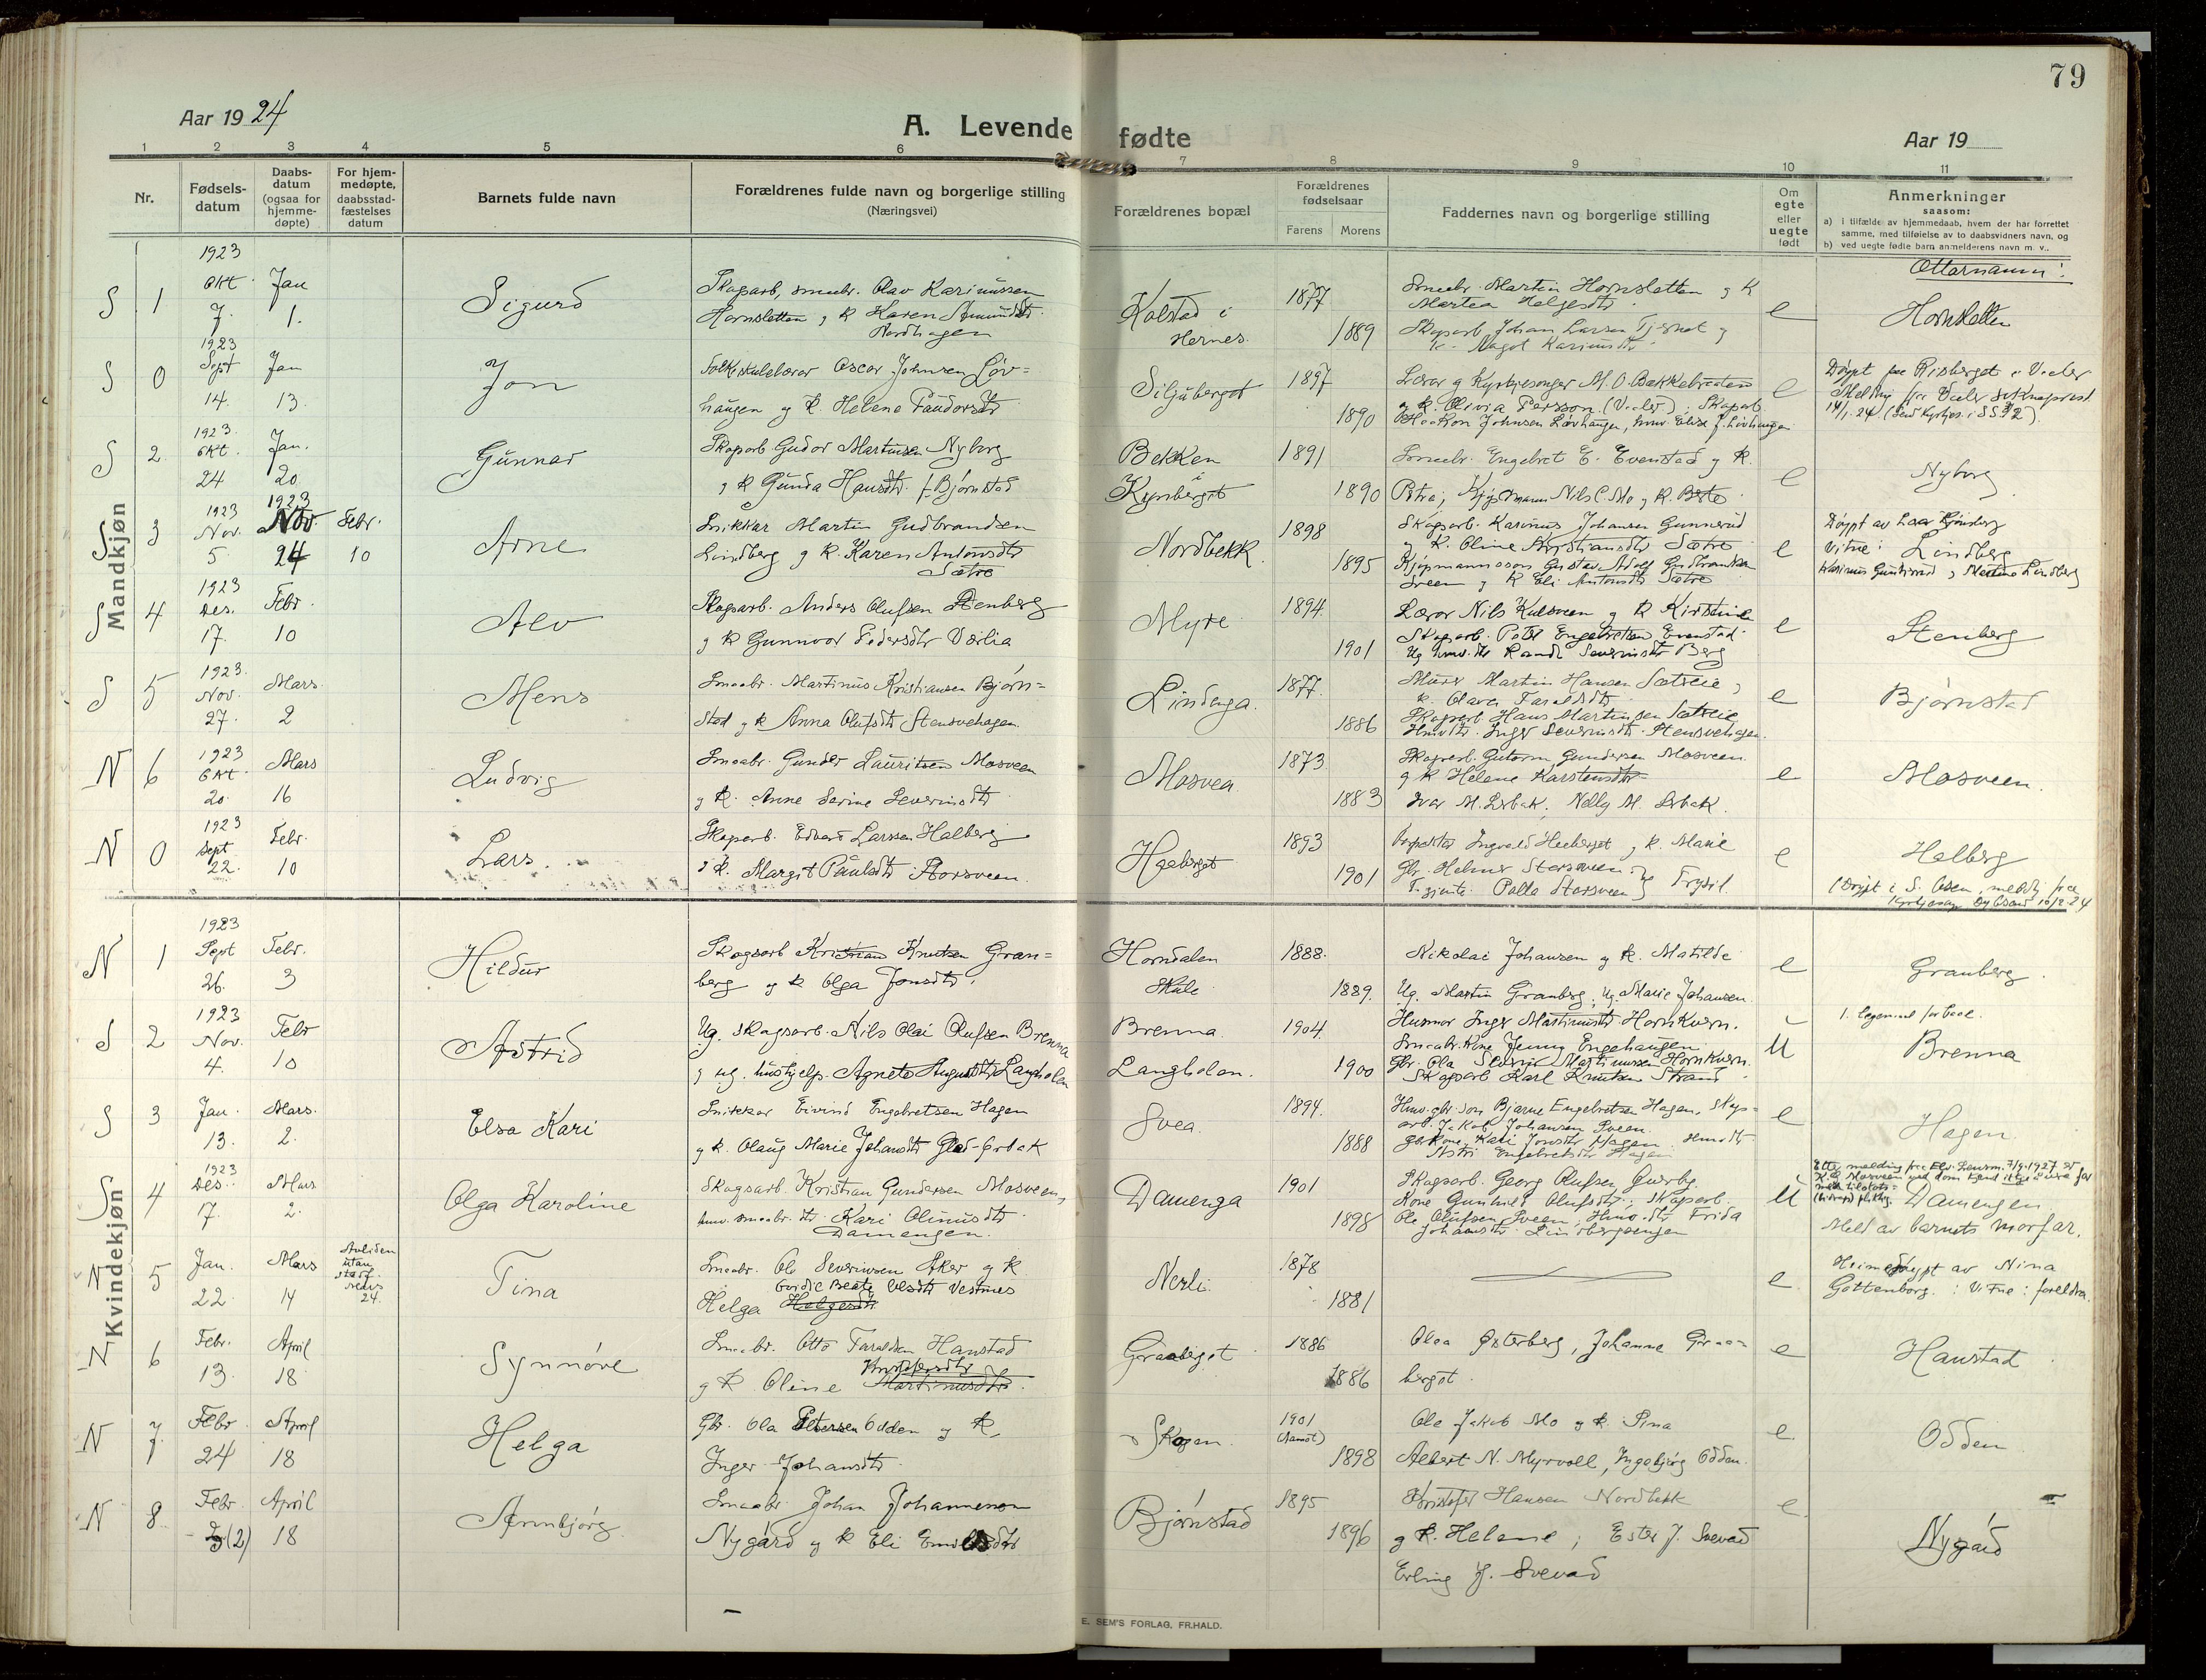 79
Aar 1924
A. Levende fødte
Aar 19
1 2 3 4 5 6 7 8 9 10 11
Nr.
Fødsels-
datum
Daabs-
datum
(ogsaa for
hjemme-
døpte)
For hjem-
medøpte,
daabsstad-
fæstelses
datum
Barnets fulde navn
Forældrenes fulde navn og borgerlige stilling
(Næringsvei)
Forældrenes bopæl
Forældrenes
fødselsaar
Farens Morens
Faddernes navn og borgerlige stilling
Om
egte
eller
uegte
født
Anmerkninger
saasom:
a) i tilfælde av hjemmedaab, hvem der har forrettet
samme, med tilføielse av to daabsvidners navn, og
b) ved uegte fødte barn anmelderens navn m. v..
Ættarnamn:
Mandkjøn
S 1 1923 Okt. 7. Jan 1.
Sigurd
Skogarb, smaabr. Olav Karinussen
Hornsletten og K Karen Amundsdtr.
Nordhagen
Kolstad i
Hernes.
1877
1889
Smaabr. Martin Hornsletten og K
Martea Helgesdtr.
Skogarb. Johan Larsen Tjernet og
K. Magot Karinusdtr.
e
Hornsletten
S 0 1923 Sept 14. Jan 13.
Jon
Folkeskulelærar Oscar Johnsen Løv=
haugen og K. Helene
Siljuberget
1897
1890
Lærar og Kyrkjesongar M. O. Bakkebraaten
og K. Olivia Persson. (Vaaler); Skogarb
Haakon Johnsen Løvhaugen,
e
Døypt paa Risberget i Vaaler
14/1.24.
S 2 1923. Okt. 24 Jan. 20
Gunnar
Skogarb Gudor Martinsen Nyborg
og K Gunda Hansdtr. f. Bjørnstad
Bekken
i
Kynberget
1891
1890
Smaabr. Engebret E. Evenstad og K.
Petra; Kjøpmann Nils C. Mo og K. Berte.
e
Nyborg
S 3 1923 Nov. 5 1923 Nov. 24 Febr. 10
Arne
Snikkar Martin Gudbrandsen
Lindberg og K. Karen Antonsdtr
Sætre
Nordbekk
1898
1895
Skogarb. Karinus Johansen Gunnerud
og K. Oline Kristiansdtr Sætre
Kjøpmannsson Gustav Adolf Gudbrandsen
Sveen og K Eli Antonsdtr Sætre
e
Døypt av
Vitne: Lindberg
Karinus Gunnerud og Martine Lindberg
S 4 1923 Des. 17. Febr. 10
Alv
Skogarb. Anders Olufsen Stenberg
og K Gunnvor Pedersdtr Værlia
Myre
1894.
1901
Lærar Nils Kulsveen og K Kirstine
Skogarb. Peter Engebretsen Evenstad.
Ug. hmv. dtr Randi Severinsdtr Berg
e
Stenberg
S 5 1923. Nov. 27. Mars. 2
Mens
Smaabr. Martinus Kristiansen Bjørn=
stad og K Anna Olufsdtr Stensvehagen.
Lindenga.
1877.
1886
Murar Martin Hansen Sætreie,
K. Olava Taraldsdtr.
Skogarb Hans Martinsen Sætreie
Hmvdtr. Inger Severinsdtr Stensvehagen.
e
Bjørnstad
N 6 1923 Okt 20. Mars 16
Ludvig
Smaabr. Gunder Lauritsen Mosveen
og K. Anne Serine Severinsdtr
Mosvea
1873
1883
Skogarb. Gutorm Gundersen Mosveen.
og K Helene Karstensdtr
Ivar M. Erbak, Nelly M. Erbak.
e
Mosveen.
N 0 1923 Sept. 22. Febr. 10
Lars.
Skogarb. Edvard Larssen Halberg
og K. Margit Paulsdtr Storsveen.
Haaberget
1893
1901
Ingvald Haaberget og K. Marie
Gbr. Helmer Storsveen og
gjente. Palla Storsveen } Trysil.
e
Halberg
(Døypt i S. Osen, meldg fra
10/2-24
Kvindekjøn
N 1 1923 Sept 26. Febr. 3
Hildur
Skogsarb Kristian Knutsen Gran=
berg og K Olga Jonsdtr.
Horndalen
Skule
1888.
1889.
Nikolai Johansen og K. Matilde
Ug. Martin Granberg, Ug. Marie Johansen.
e
Granberg.
S 2 1923 Nov. 4. Febr 10
Astrid
Ug. skogsarb. Nils Olai Olufsen Brenna
og ug. hushjelp. Agnete Augustdtr Langholen
Brenna
Langholen.
1904.
1900
Husmor Inger Martinusdtr Hornkvern.
Smaabr. kone Jenny Engehaugen.
Gbr. Ola Martinussen Hornkvern
Skogarb Karl Knutsen Strand.
U
Brenna
S 3 Jan. 13. Mars. 2.
Elsa Kari
Snikkar Eivind Engebretsen Hagen
og K. Olaug Marie Johansdtr Glad-Erbak
Svea
1894.
1888
Hmv. gbr. son Bjarne Engebretsen Hagen, Skog=
arb. Jakob Johansen Sveen.
Gbrkone Kari Jonsdtr Hagen. Hmvdtr
Astri Engebretsdtr Hagen
e
Hagen.
S 4 1923 Des. 17. Mars 2.
Olga Karoline
Skogsarb. Kristian Gundersen Mosveen,
hmv. smaabr. dtr. Kari Olinusdtr.
Damengen.
Damenga
1901
1898
Skogsarb. Georg Olufsen Querby.
Kone Gunhild Olufsdtr; Skogarb.
Ole Olufsen Sveen; Hmv. dtr Frida
Johansdtr. Lindbergsengen
U
Etter melding fraa Elv. Lensm. 7/9.1927 er
Damengen
Meld av barnets morfar.
N 5 Jan. 22 Mars 14
Avliden
utan
stadf.
Mars
24.
Tina
Smaabr. Ole Severinsen Aker og K
Gurdie Beate Olesdtr Vestnes
Helga Helgesdtr
Nerli.
1878
1881
e
Heimedøypt av Nina
Gottenborg. Vitne: foreldra.
N 6 Febr. 13. April 18
Synnøve
Smaabr. Otto Taraldsen Hanstad
Kristofersdtr
og K Oline Martinusdtr.
Graaberget
1886
1886
Olga Østerberg, Johanne Graa=
berget.
e
Hanstad
N 7. Febr 24 April 18
Helga
Gbr. Ola Petersen Odden og K,
Inger Johansdtr
Skogen.
1901
(Aamot)
1898
Ole Jakob Mo og K. Sina
Albert N. Myrvoll, Ingebjørg Odden.
e
Odden
N 8 Febr 3(2) April 18
Arnnbjørg.
Smaabr. Johan Johannesen
Nygård og K Eli Emilsdtr
Bjørnstad
1895
1896
Kristofer Hansen Nordbekk
og K. Helene; Ester J. Svevad
Erling J. Svevad
e
Nygård
E. SEM'S FORLAG, FR.HALD.